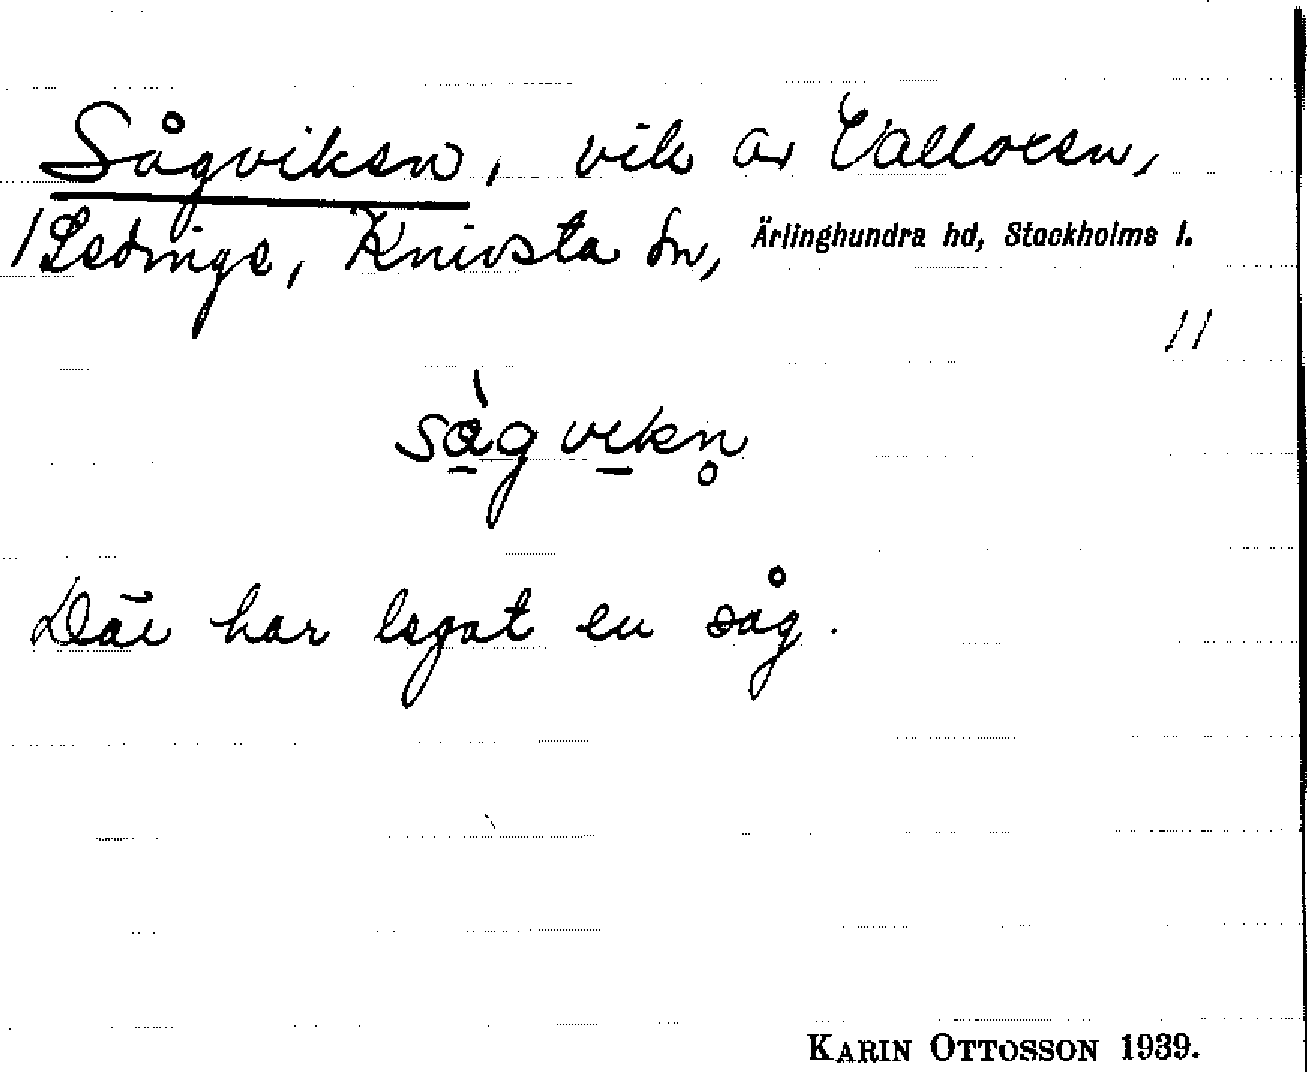 Sågviken, vik av Valloxen,
/ Ledinge, Knivsta sn, Ärlinghundra hd, Stockholms l.
//
såg vikn̥
Där har legat en såg.
KARIN OTTOSSON 1939.